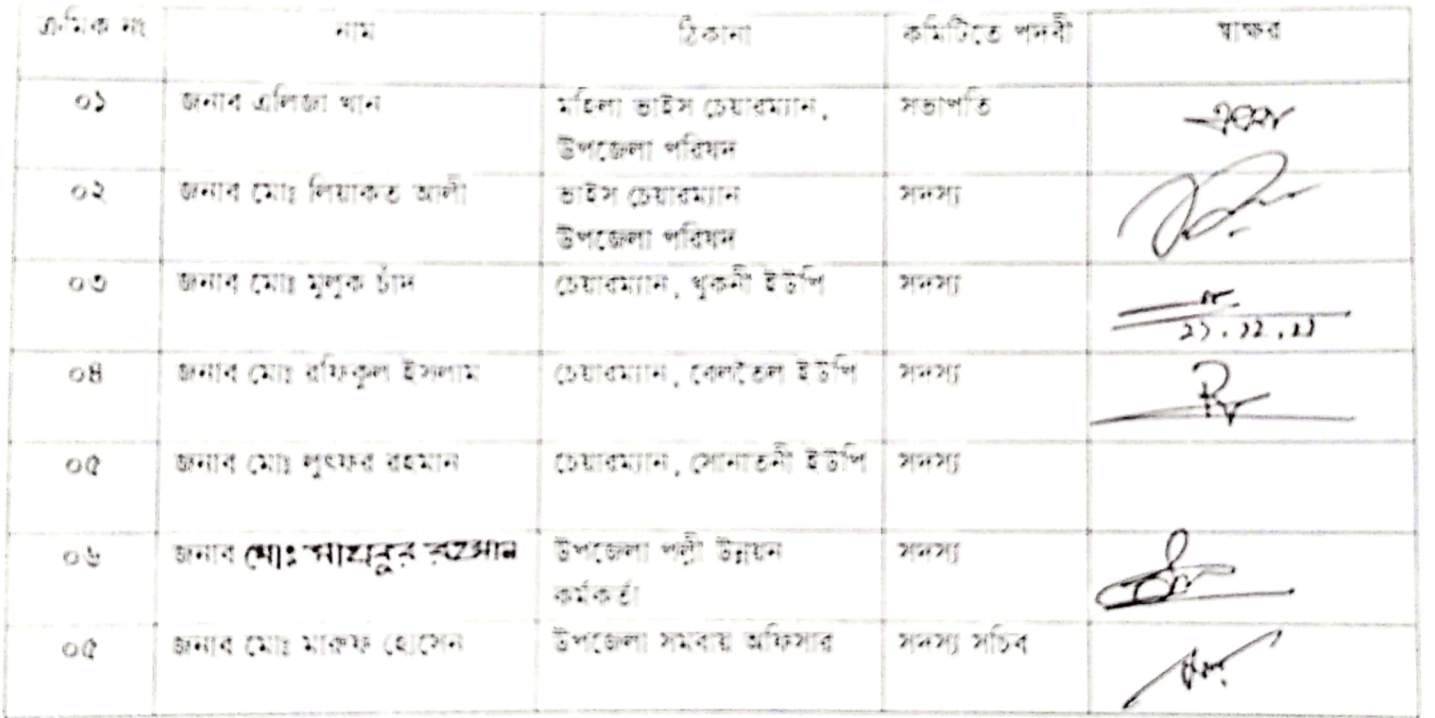 ক্রমিক নং নাম ঠিকানা কমিটিতে পদবী স্বাক্ষর
০১ জনাব এলিজা খান মহিলা ভাইস চেয়ারম্যান, সভাপতি
উপজেলা পরিষদ
০২ জনাব মোঃ লিয়াকত আলী ভাইস চেয়ারম্যান সদস্য
উপজেলা পরিষদ
০৩ জনাব মোঃ মুলুক চাঁদ চেয়ারম্যান, খুকনী ইউপি সদস্য
০৪ জনাব মোঃ রফিকুল ইসলাম চেয়ারম্যান, বেলতৈল ইউপি সদস্য
০৫ জনাব মোঃ লুৎফর রহমান চেয়ারম্যান, সোনাতনী ইউপি সদস্য
০৬ জনাব মোঃ রহমান উপজেলা পল্লী উন্নয়ন সদস্য
কর্মকর্তা
০৫ জনাব মোঃ মারুফ হোসেন উপজেলা সমবায় অফিসার সদস্য সচিব